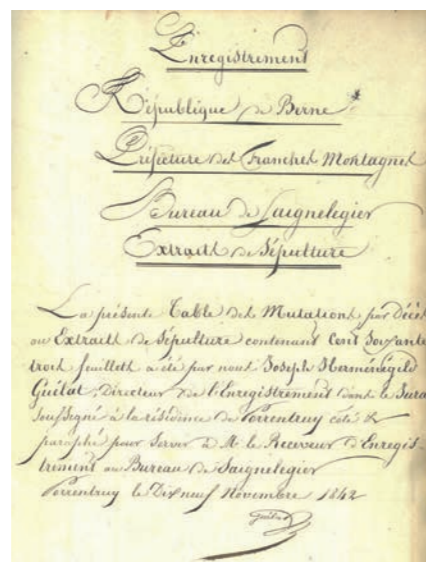 Enregistrement
République de Berne
Préfecture des Franches Montagnes
Bureau de Saignelegier
Extraits de Sépulture
La présente Table des Mutations par décès
ou Extraits de Sépulture contenant Cent Soixante
trois feuillets a été par nous Joseph Herménégile
Guélat, Directeur de l'Enregistrement dans le Jura
soussigné à la résidence de Porrentruy coté &
paraphé pour servir à Mr le Receveur d'Enregis-
trement au Bureau de Saignelegier
Porrentruy le Dix neuf Novembre 1842
Guélat